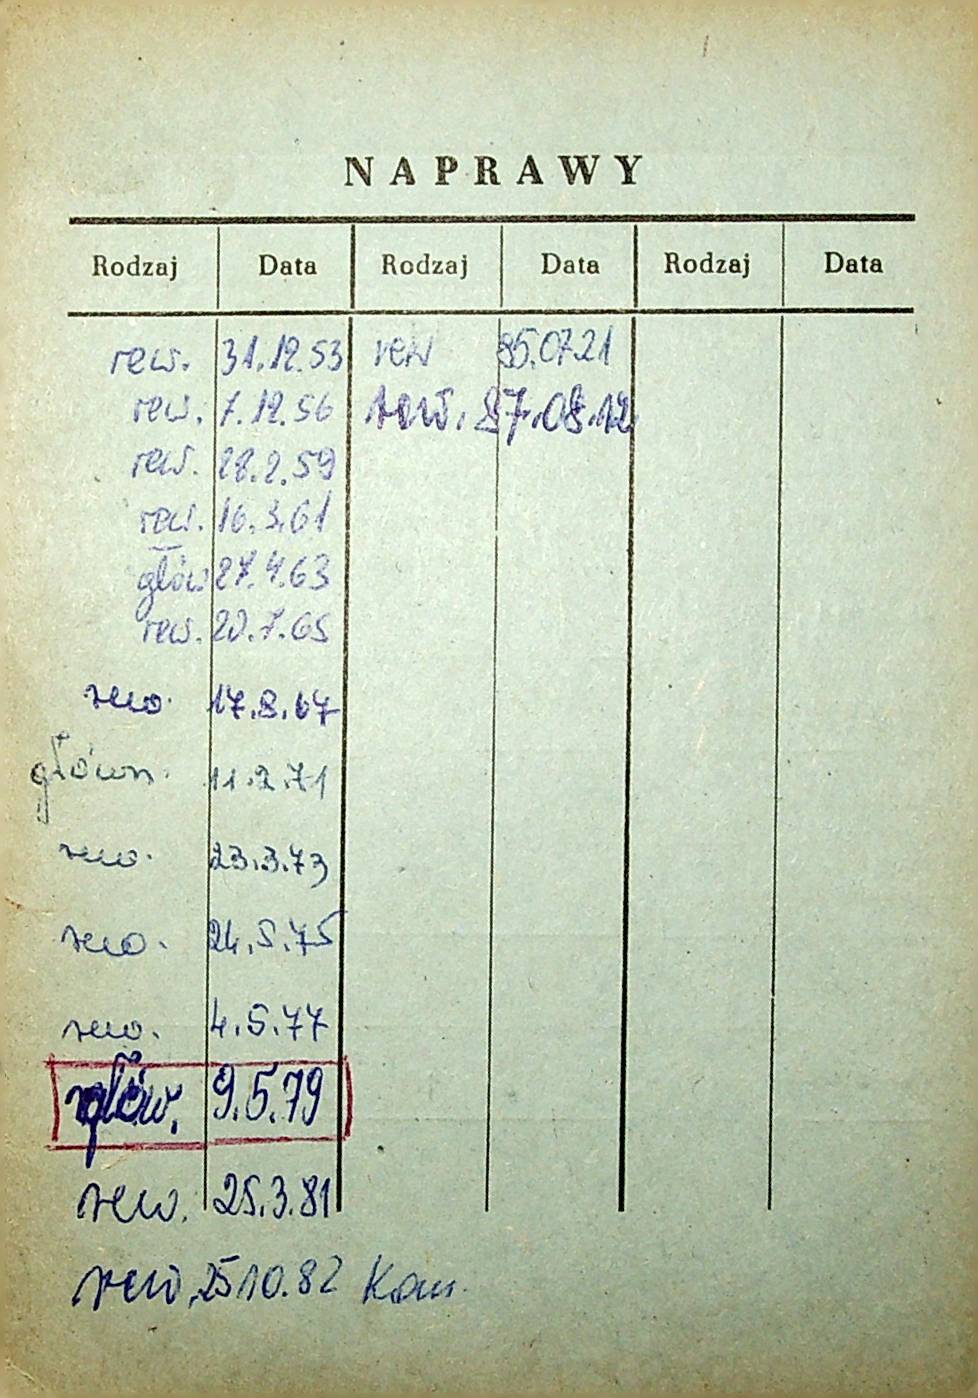 NAPRAWY
Rodzaj Data Rodzaj Data Rodzaj Data
rew. 31.12.53 rew 85.07.21
rew. 7.12.56 rew. 87.08.12
rew. 28.2.59
rew. 16.3.61
głów 27.4.63
rew. 20.7.65
rew. 17.8.67
główn. 11.2.71
rew. 23.3.73
rew. 24.5.75
rew. 4.5.77
głów. 9.5.79
rew. 25.3.81
rew. 25 10.82